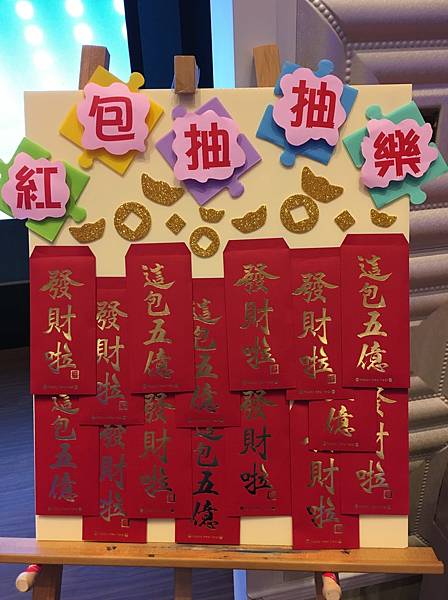 紅包抽抽樂
發財啦
發財啦
這包五億
這包五億
發財啦
發財啦
這包五億
這包五億
發財啦
發財啦
這包五億
發財啦
億
發財啦